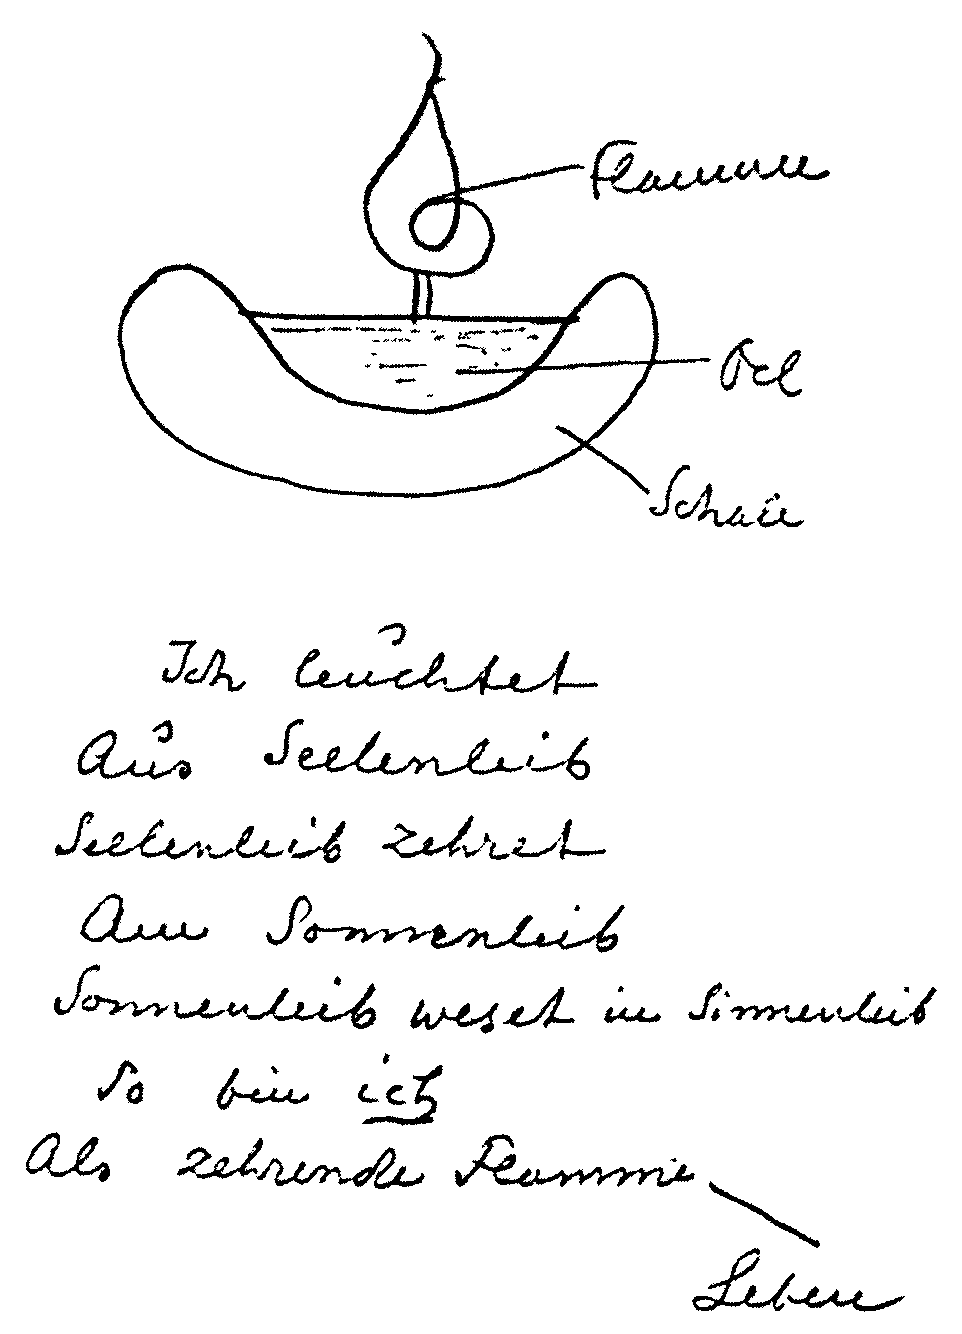 Flamme
Oel
Schale
Ich leuchtet
Aus Seelenleib
Seelenleib zehret
Am Sonnenleib
Sonnenleib weset in Sinnenleib
So bin ich
Als zehrende Flamme
Leben